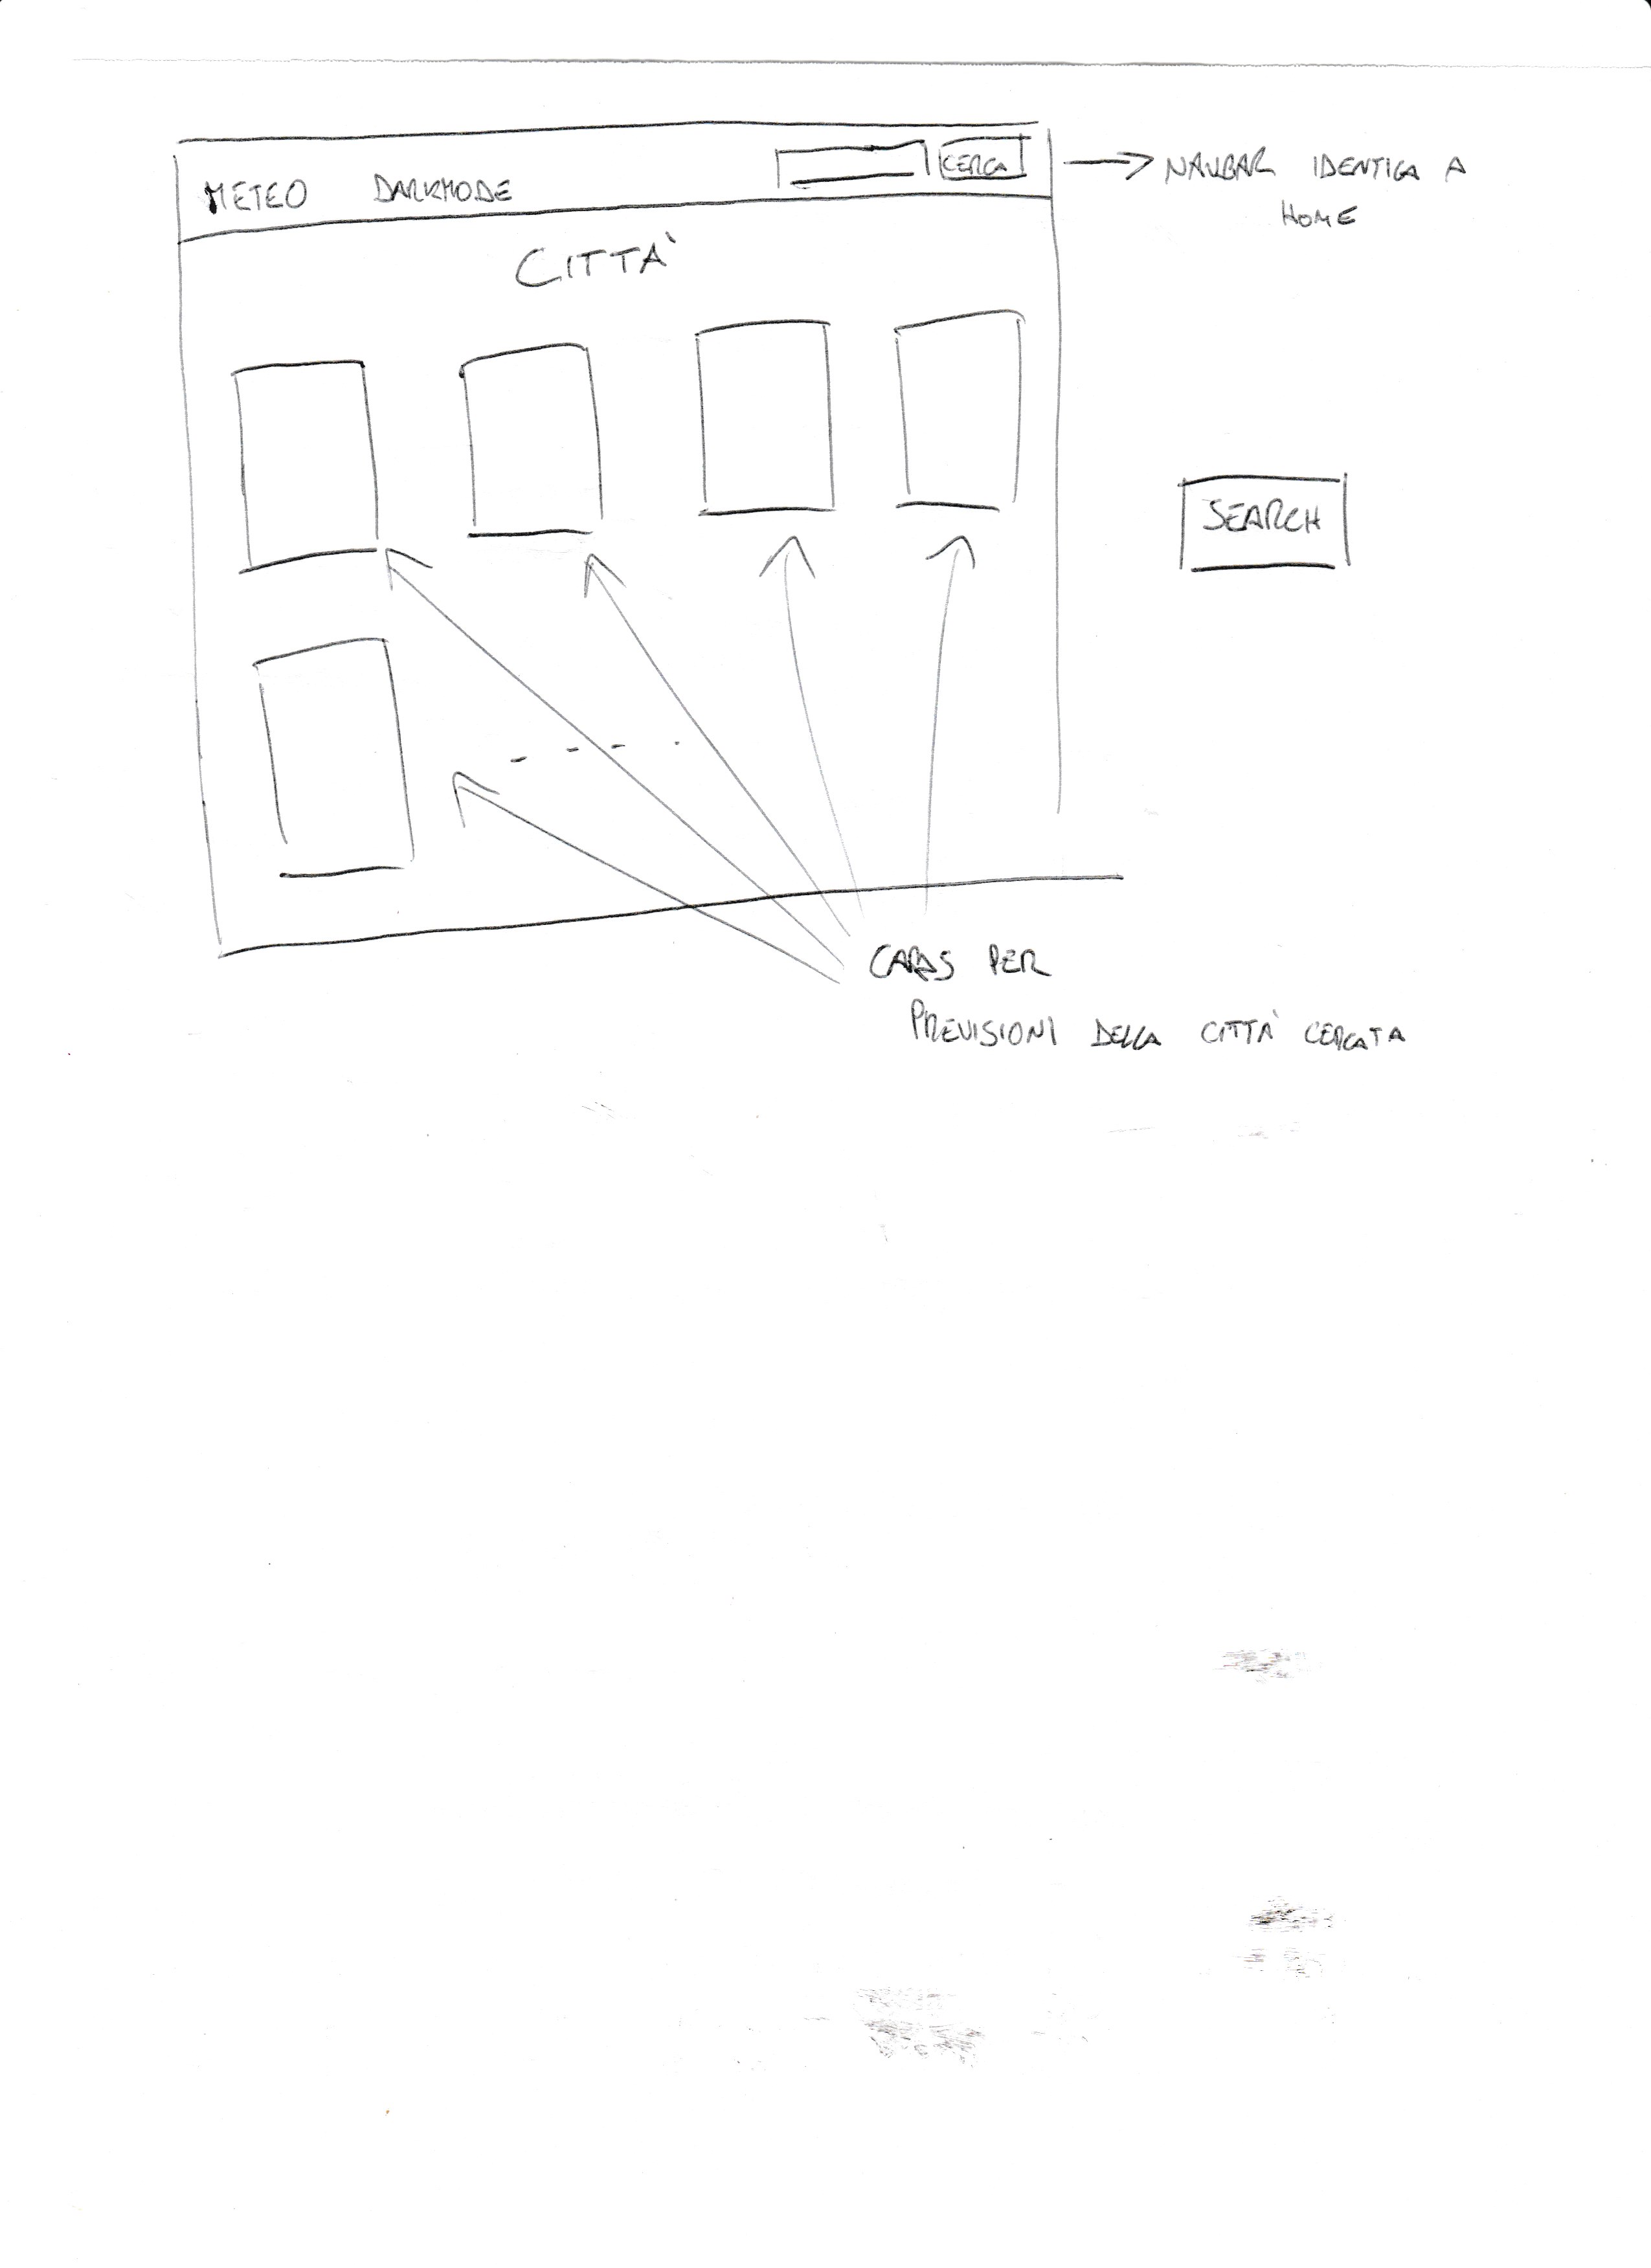 METEO DARKMODE CERCA
NAVBAR IDENTICA A
HOME
CITTÀ
SEARCH
CARDS PER
PREVISIONI DELLA CITTÀ CERCATA